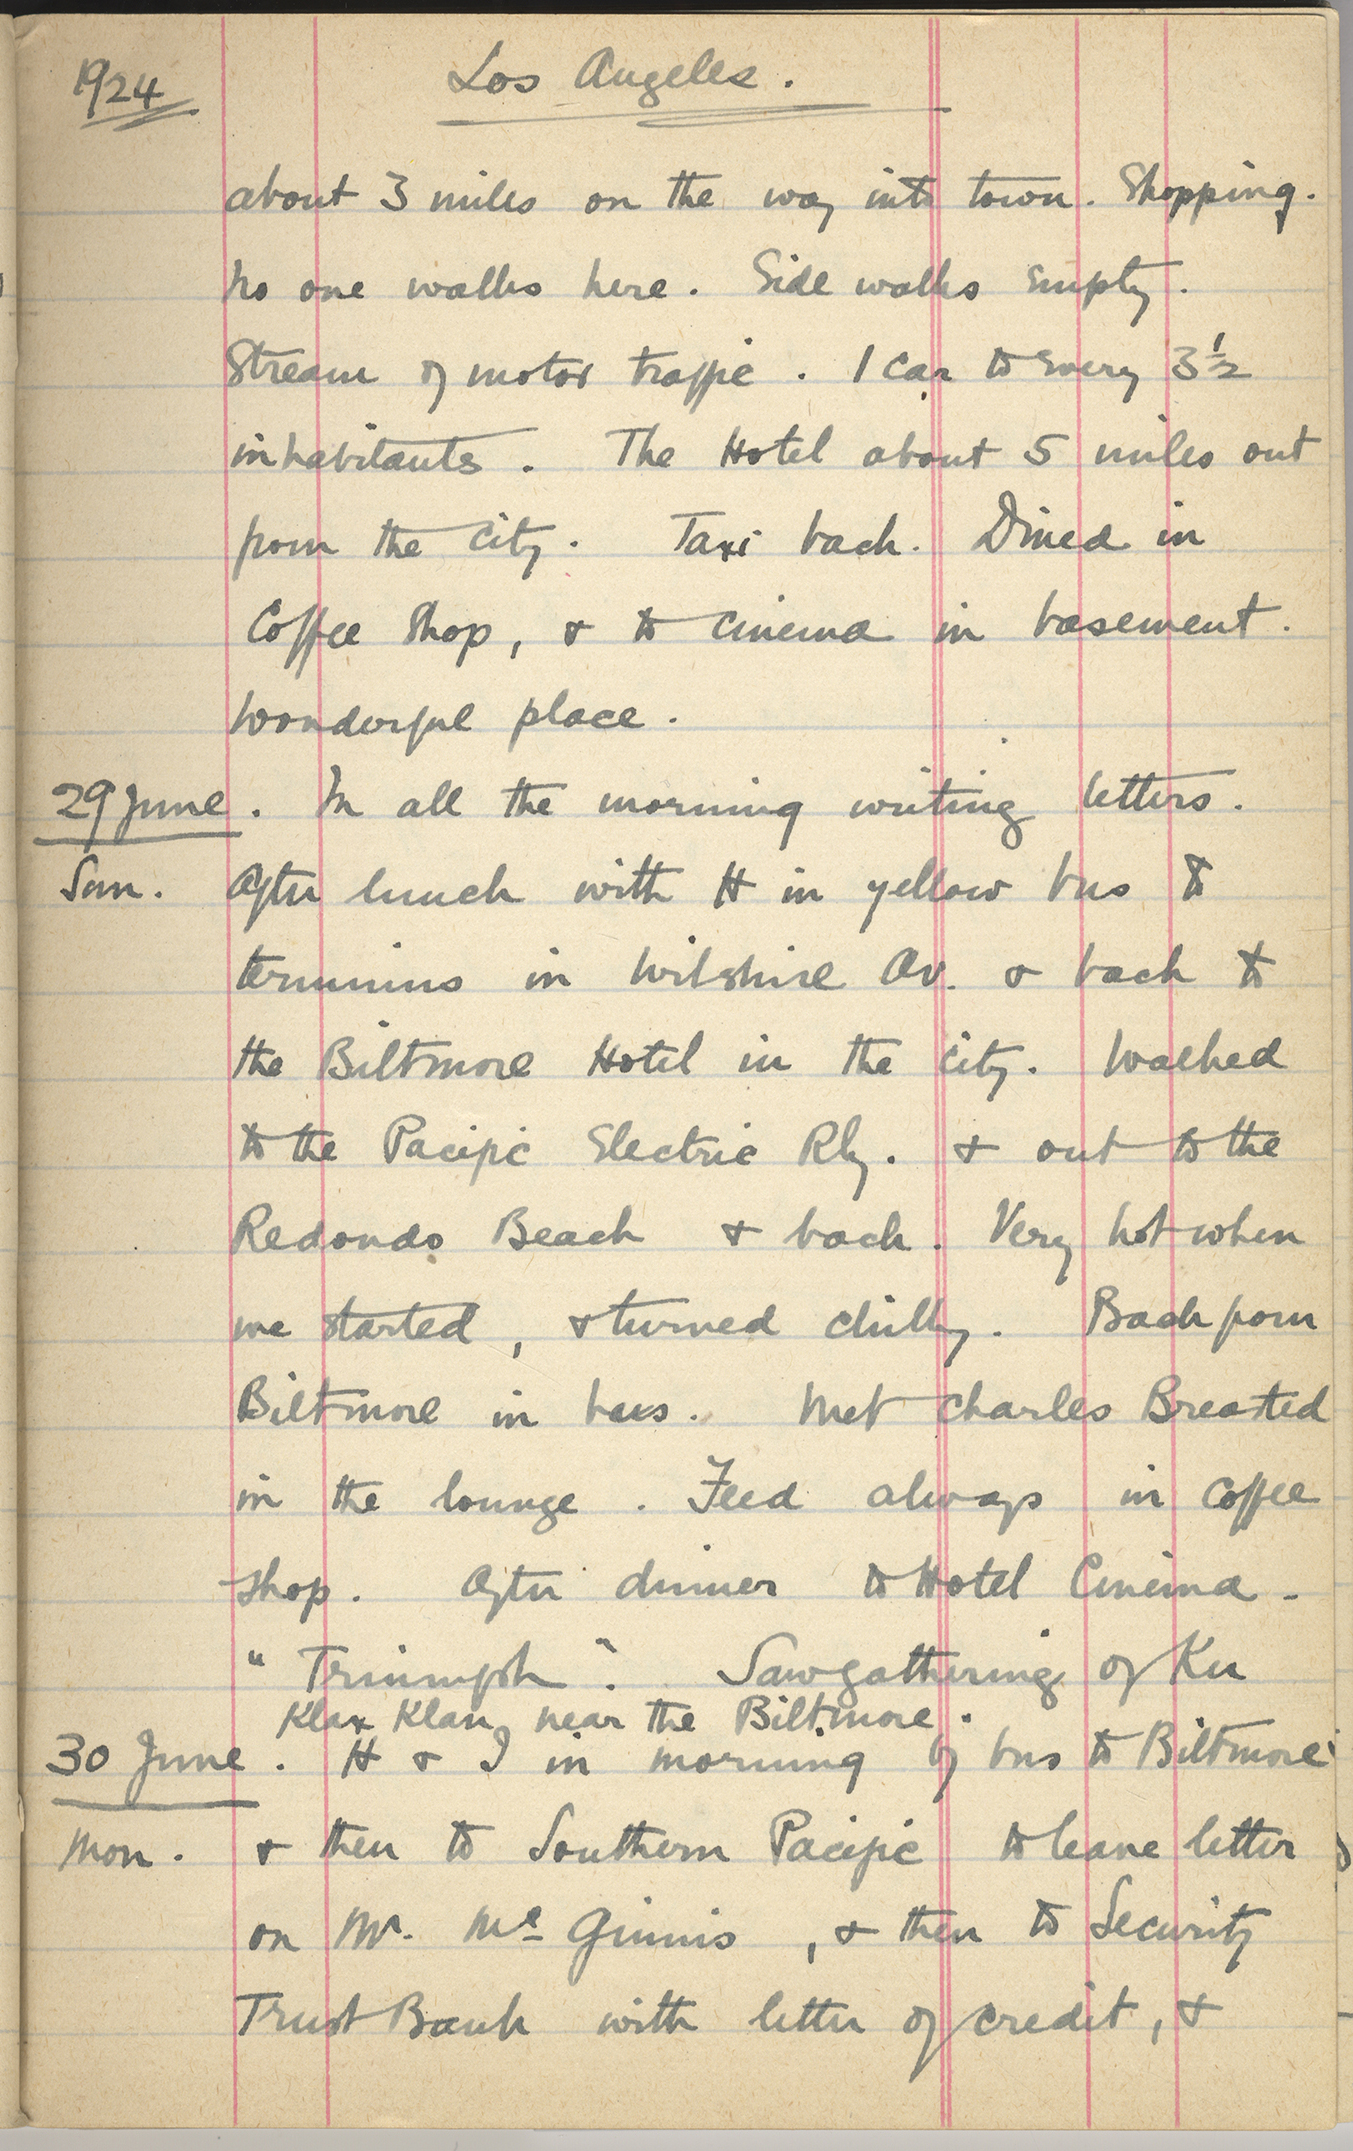 1924 Los Angeles.
about 3 miles on the way into town. Shopping.
No one walks here. Side walks empty.
Stream of motor traffic. 1 car to every 3½
inhabitants. The Hotel about 5 miles out
from the city. Taxi back. Dined in
Coffee Shop, & to cinema in basement.
Wonderful place.
29 June. In all the morning writing letters.
Sun. After lunch with H in yellow bus to
terminus in Wilshire Av. & back to
the Biltmore Hotel in the city. Walked
to the Pacific Electric Rly. & out to the
Redondo Beach & back. Very hot when
we started, & turned chilly. Back from
Biltmore in bus. Met Charles Breasted
in the lounge. Feed always in coffee
shop. After dinner to Hotel Cinema -
"Triumph". Saw gathering of Ku
Klax Klan, near the Biltmore.
30 June. H & I in morning by bus to Biltmore
Mon. & then to Southern Pacific to leave letter
on Mr. Mc Ginnis, & then to Security
Trust Bank with letter of credit, &